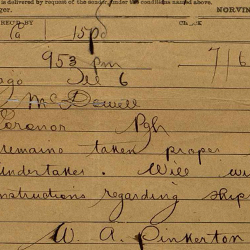 is delivered by request of the sender, under the conditions named above.
ger. NORVIN
REC'D BY CHECK
Ca 15 pd
953 pm 716
ago Dec 6
McDowell
Coronor Pgh
remains taken proper
undertaker. Will wi
nstructions regarding ship
W. A. Pinkerton